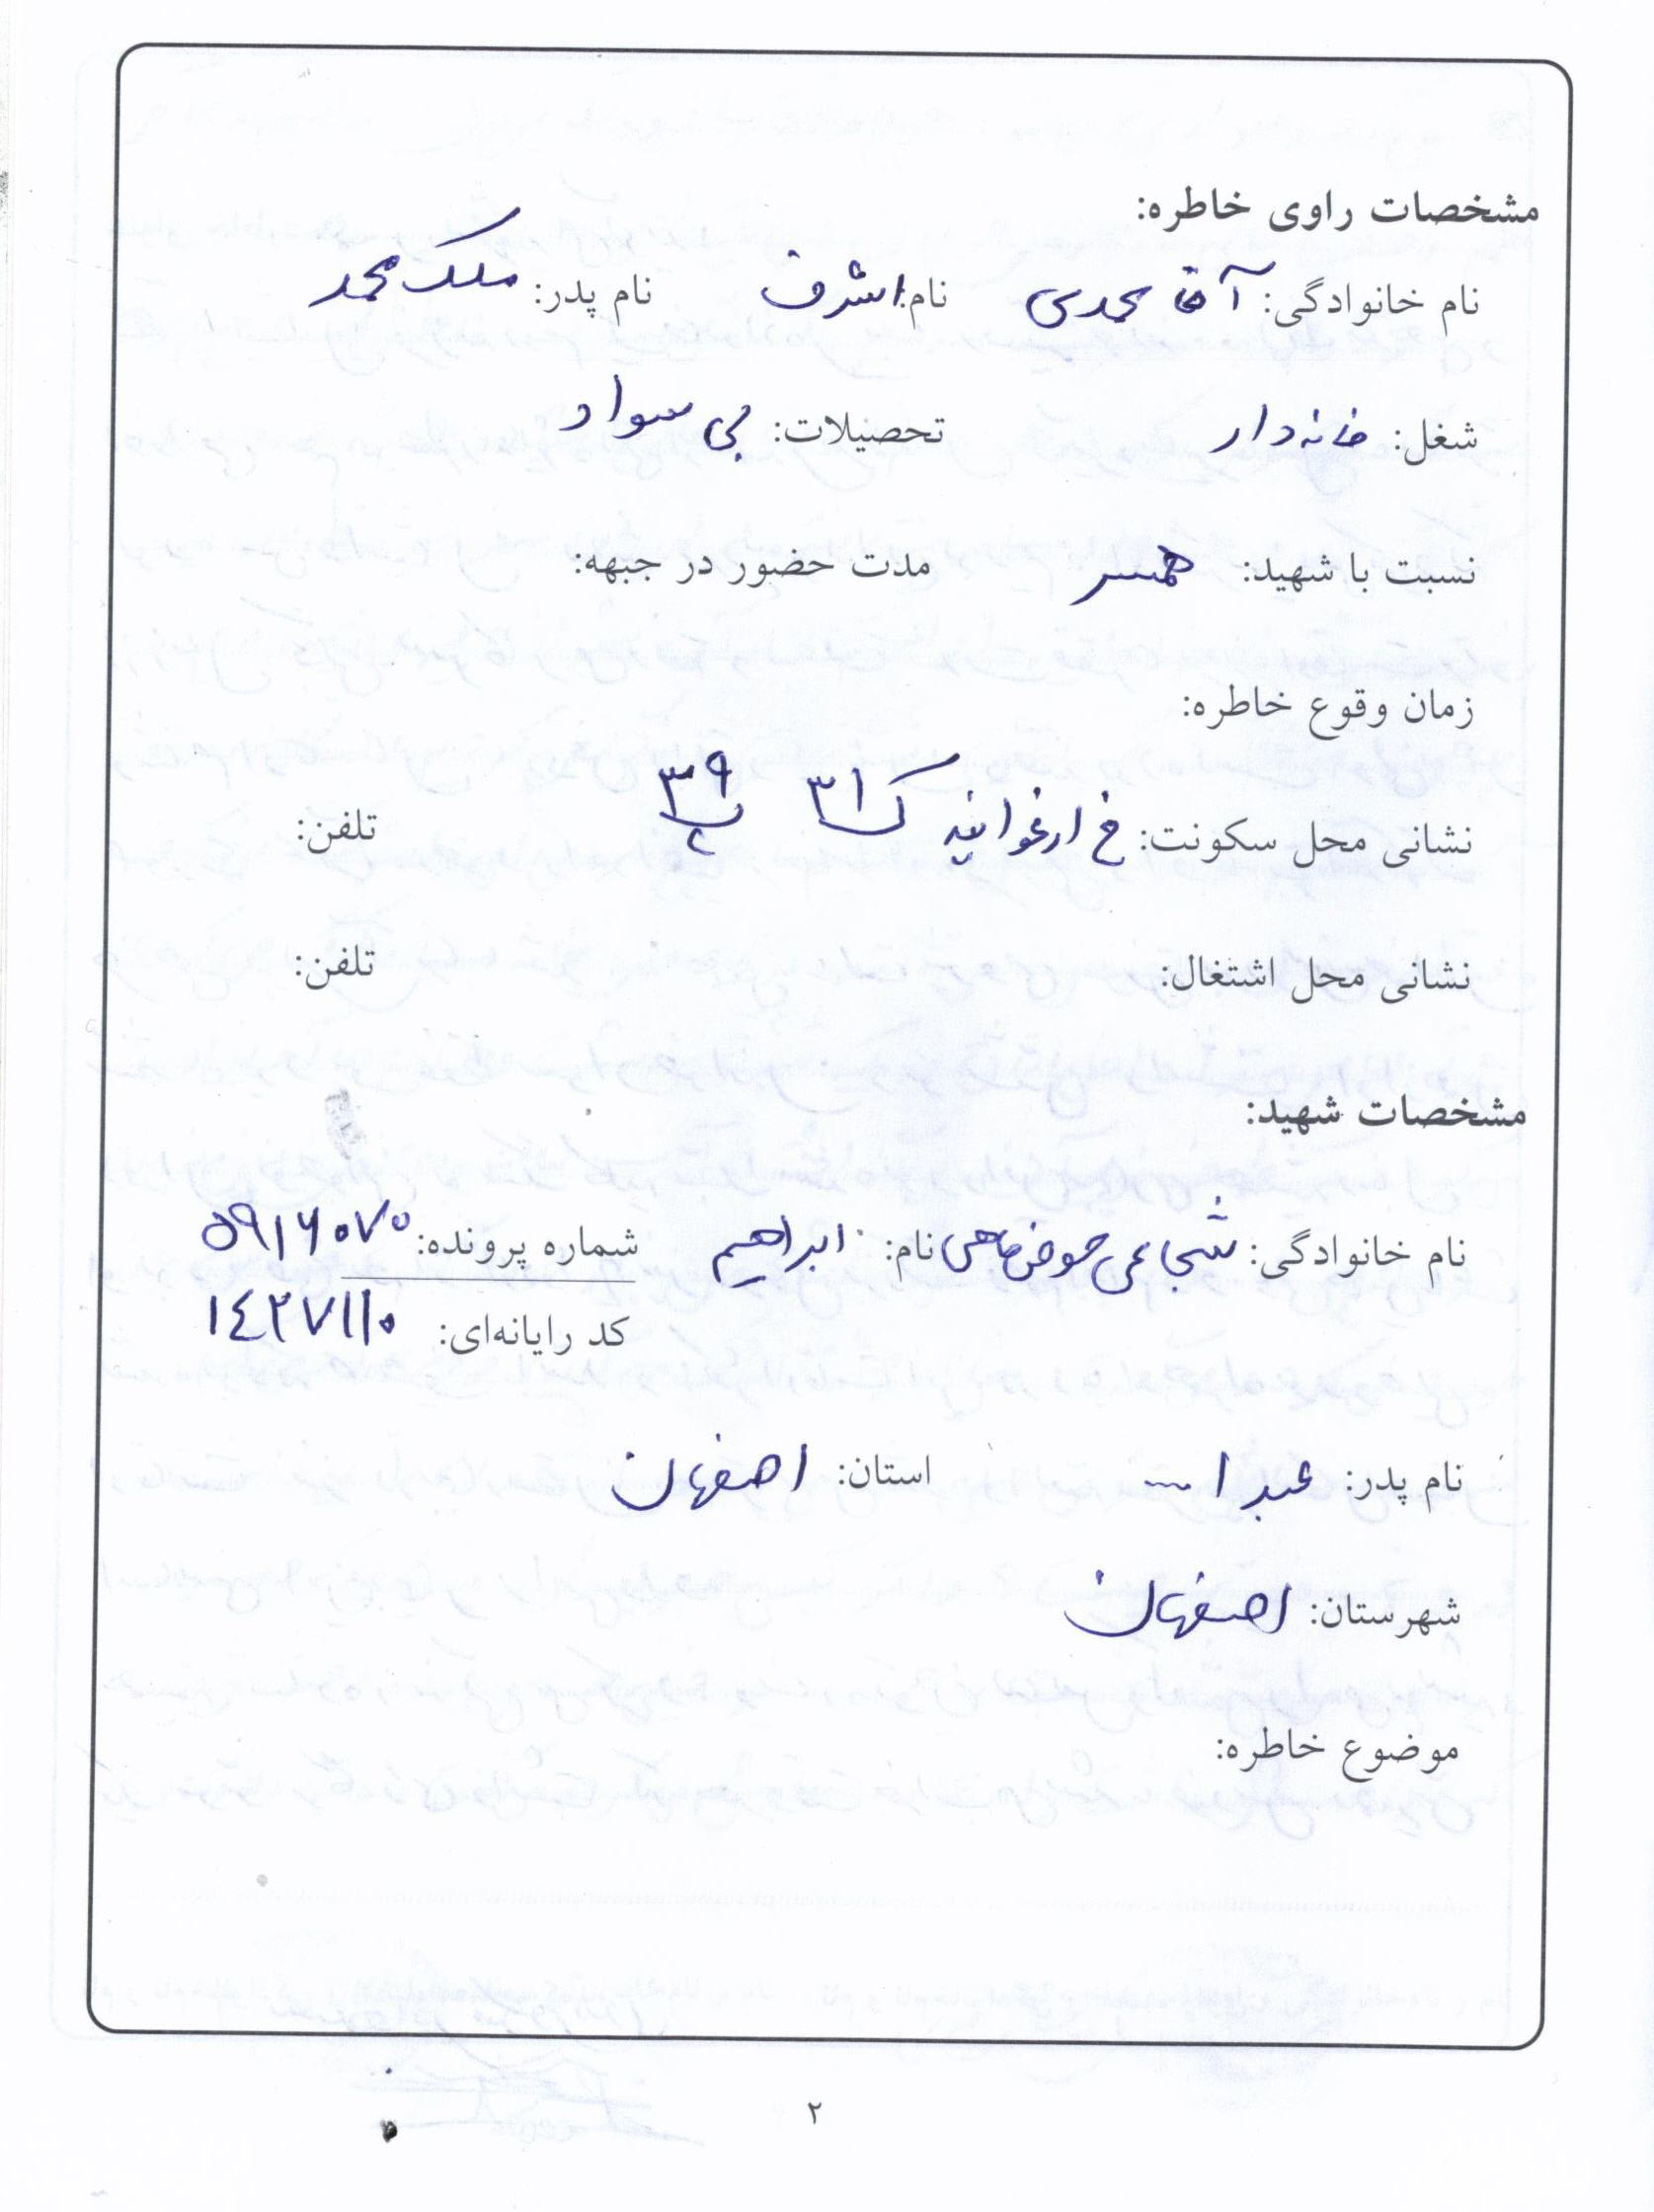 مشخصات راوی خاطره:
نام خانوادگی: آقا محمدی نام: اشرف نام پدر: ملک محمد
شغل: خانه دار تحصیلات: بی سواد
نسبت با شهید: همسر مدت حضور در جبهه:
زمان وقوع خاطره:
نشانی محل سکونت: خ ارغوانیه ک ۳۱ پ ۳۹ تلفن:
نشانی محل اشتغال: تلفن:
مشخصات شهید:
نام خانوادگی: شجاعی حوض ماهی نام: ابراهیم شماره پرونده: ۵۹۱۶۰۷۰
کد رایانه‌ای: ۱۴۲۷۱۱۰
نام پدر: عبدا... استان: اصفهان
شهرستان: اصفهان
موضوع خاطره:
۲